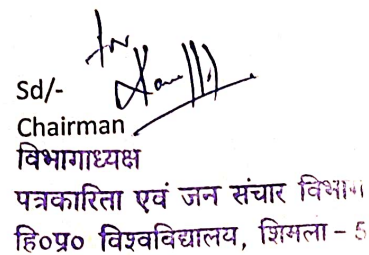 for
Sd/-
Chairman
विभागाध्यक्ष
पत्रकारिता एवं जन संचार विभाग
हि०प्र० विश्वविद्यालय, शिमला - 5